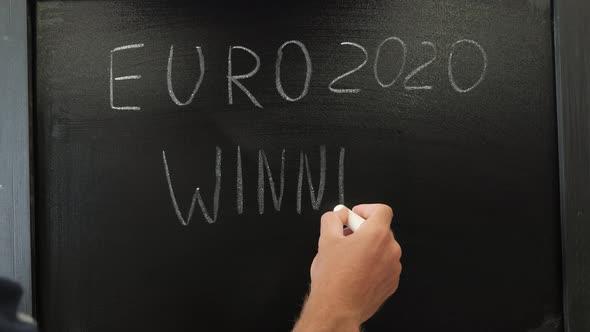 EURO2020
WINNI